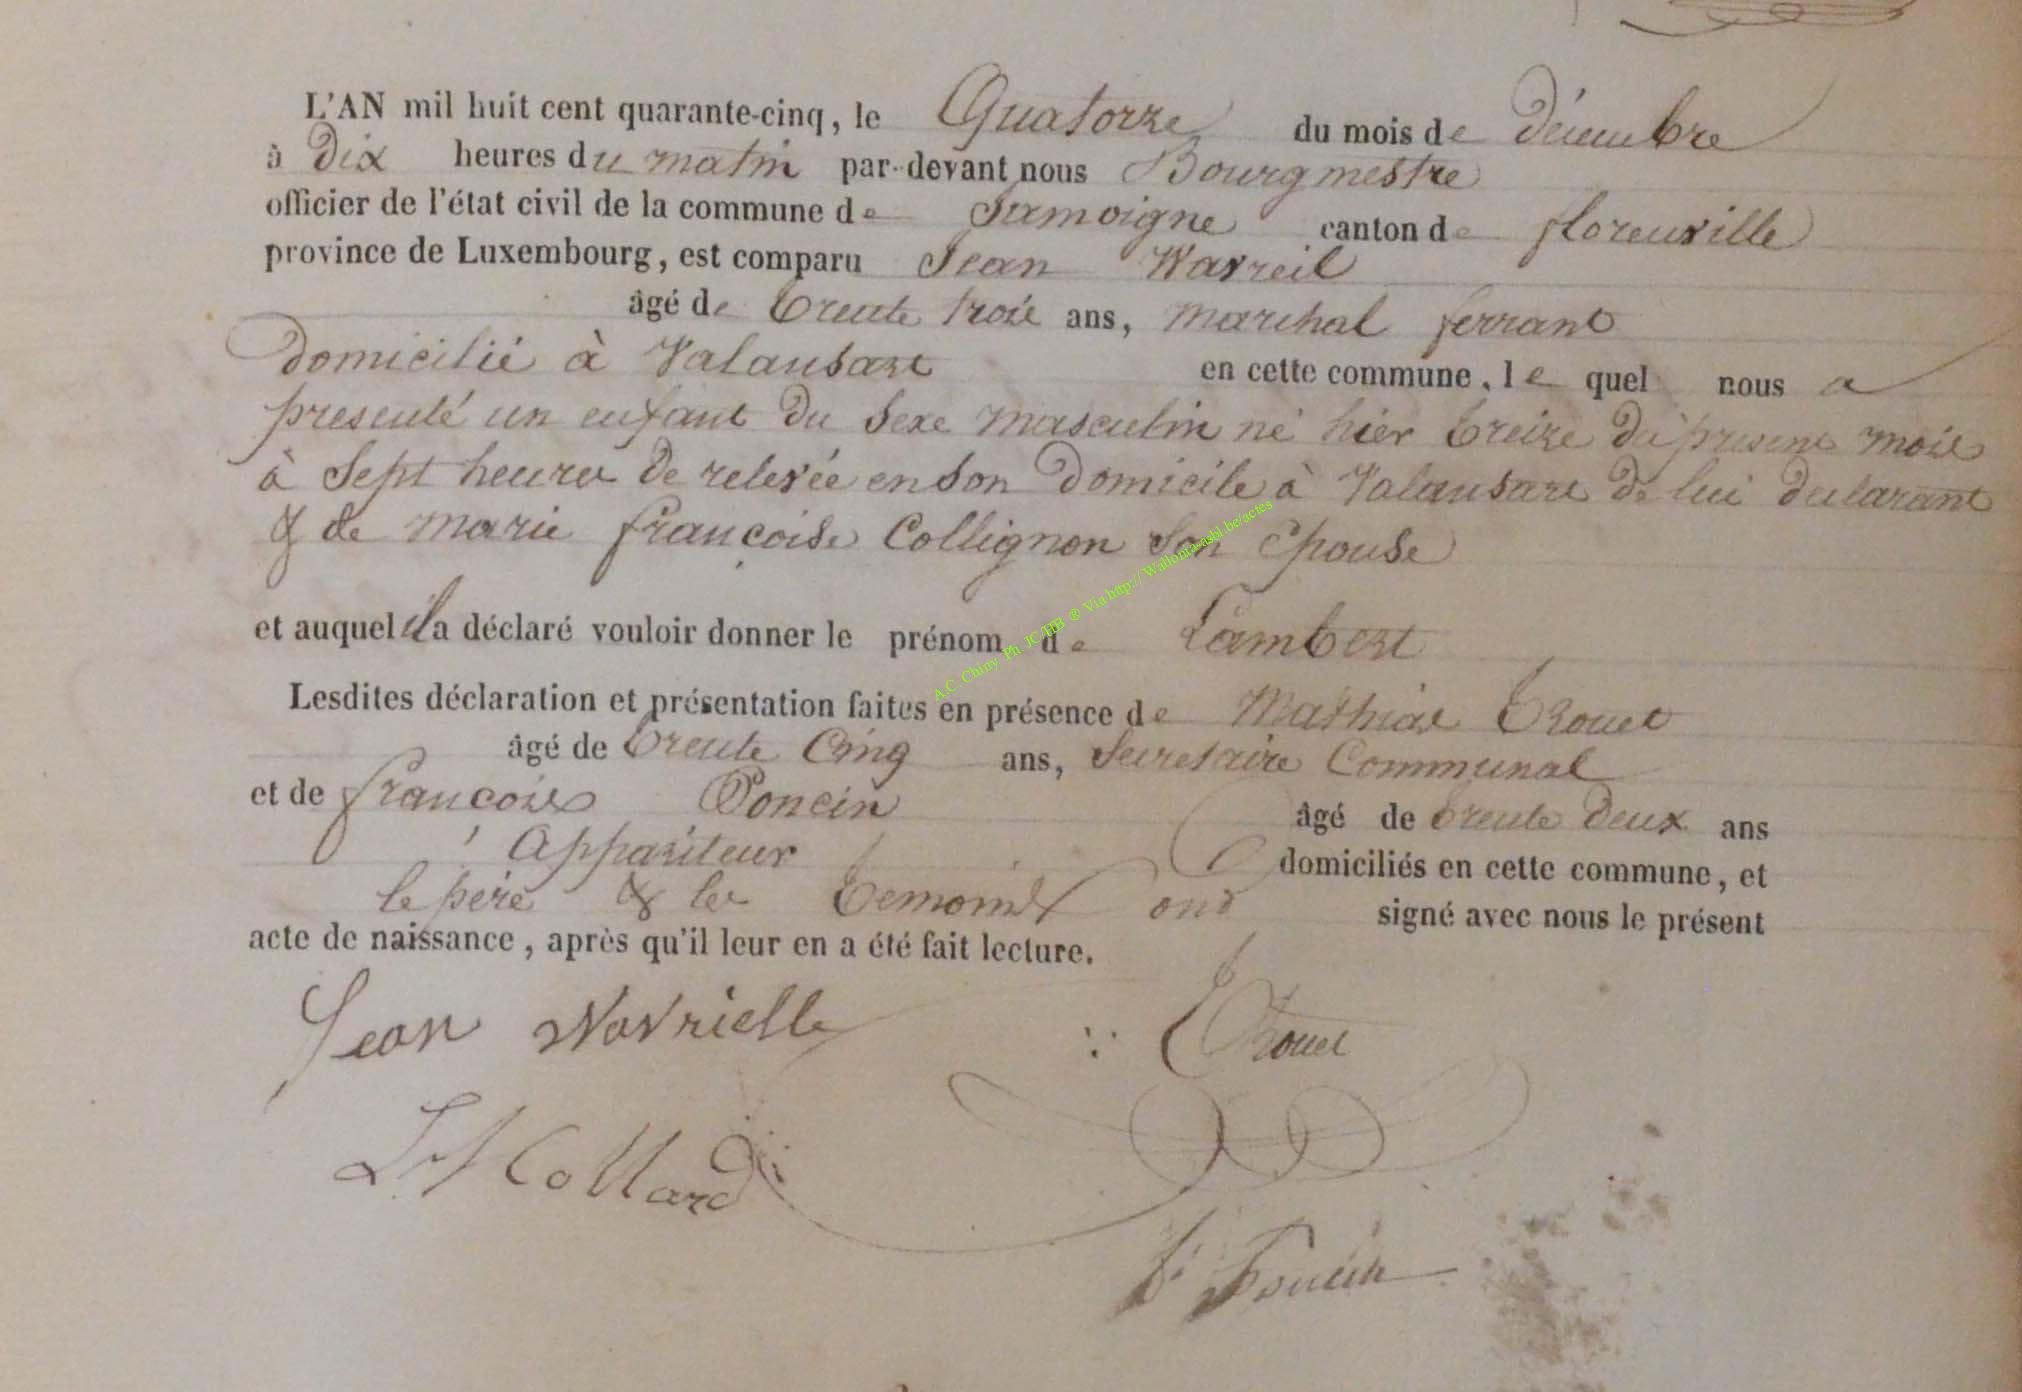 L'AN mil huit cent quarante-cinq, le Quatorze du mois de décembre
à dix heures du matin par-devant nous Bourgmestre
officier de l'état civil de la commune de Jamoigne canton de florenville
province de Luxembourg, est comparu Jean Wavreil
âgé de trente trois ans, marchal ferrant
domicilié à Valansart en cette commune, le quel nous a
presenté un enfant du sexe masculin né hier treize du présent mois
à sept heures de relevée en son domicile à Valansart de lui declarant
& de marie françoise Collignon son épouse
et auquel il a déclaré vouloir donner le prénom de Lambert
Lesdites déclaration et présentation faites en présence de Mathias Trouet
âgé de trente Cinq ans, Secretaire Communal
et de françois Poncin âgé de trente deux ans
Appariteur domiciliés en cette commune, et
le père & les temoins ont signé avec nous le présent
acte de naissance, après qu'il leur en a été fait lecture.
Jean Wavrielle Trouet
Collard
f. Poncin
A.C Chiny Ph JC/HB ® Via http://Wallonia-asbl.be/actes